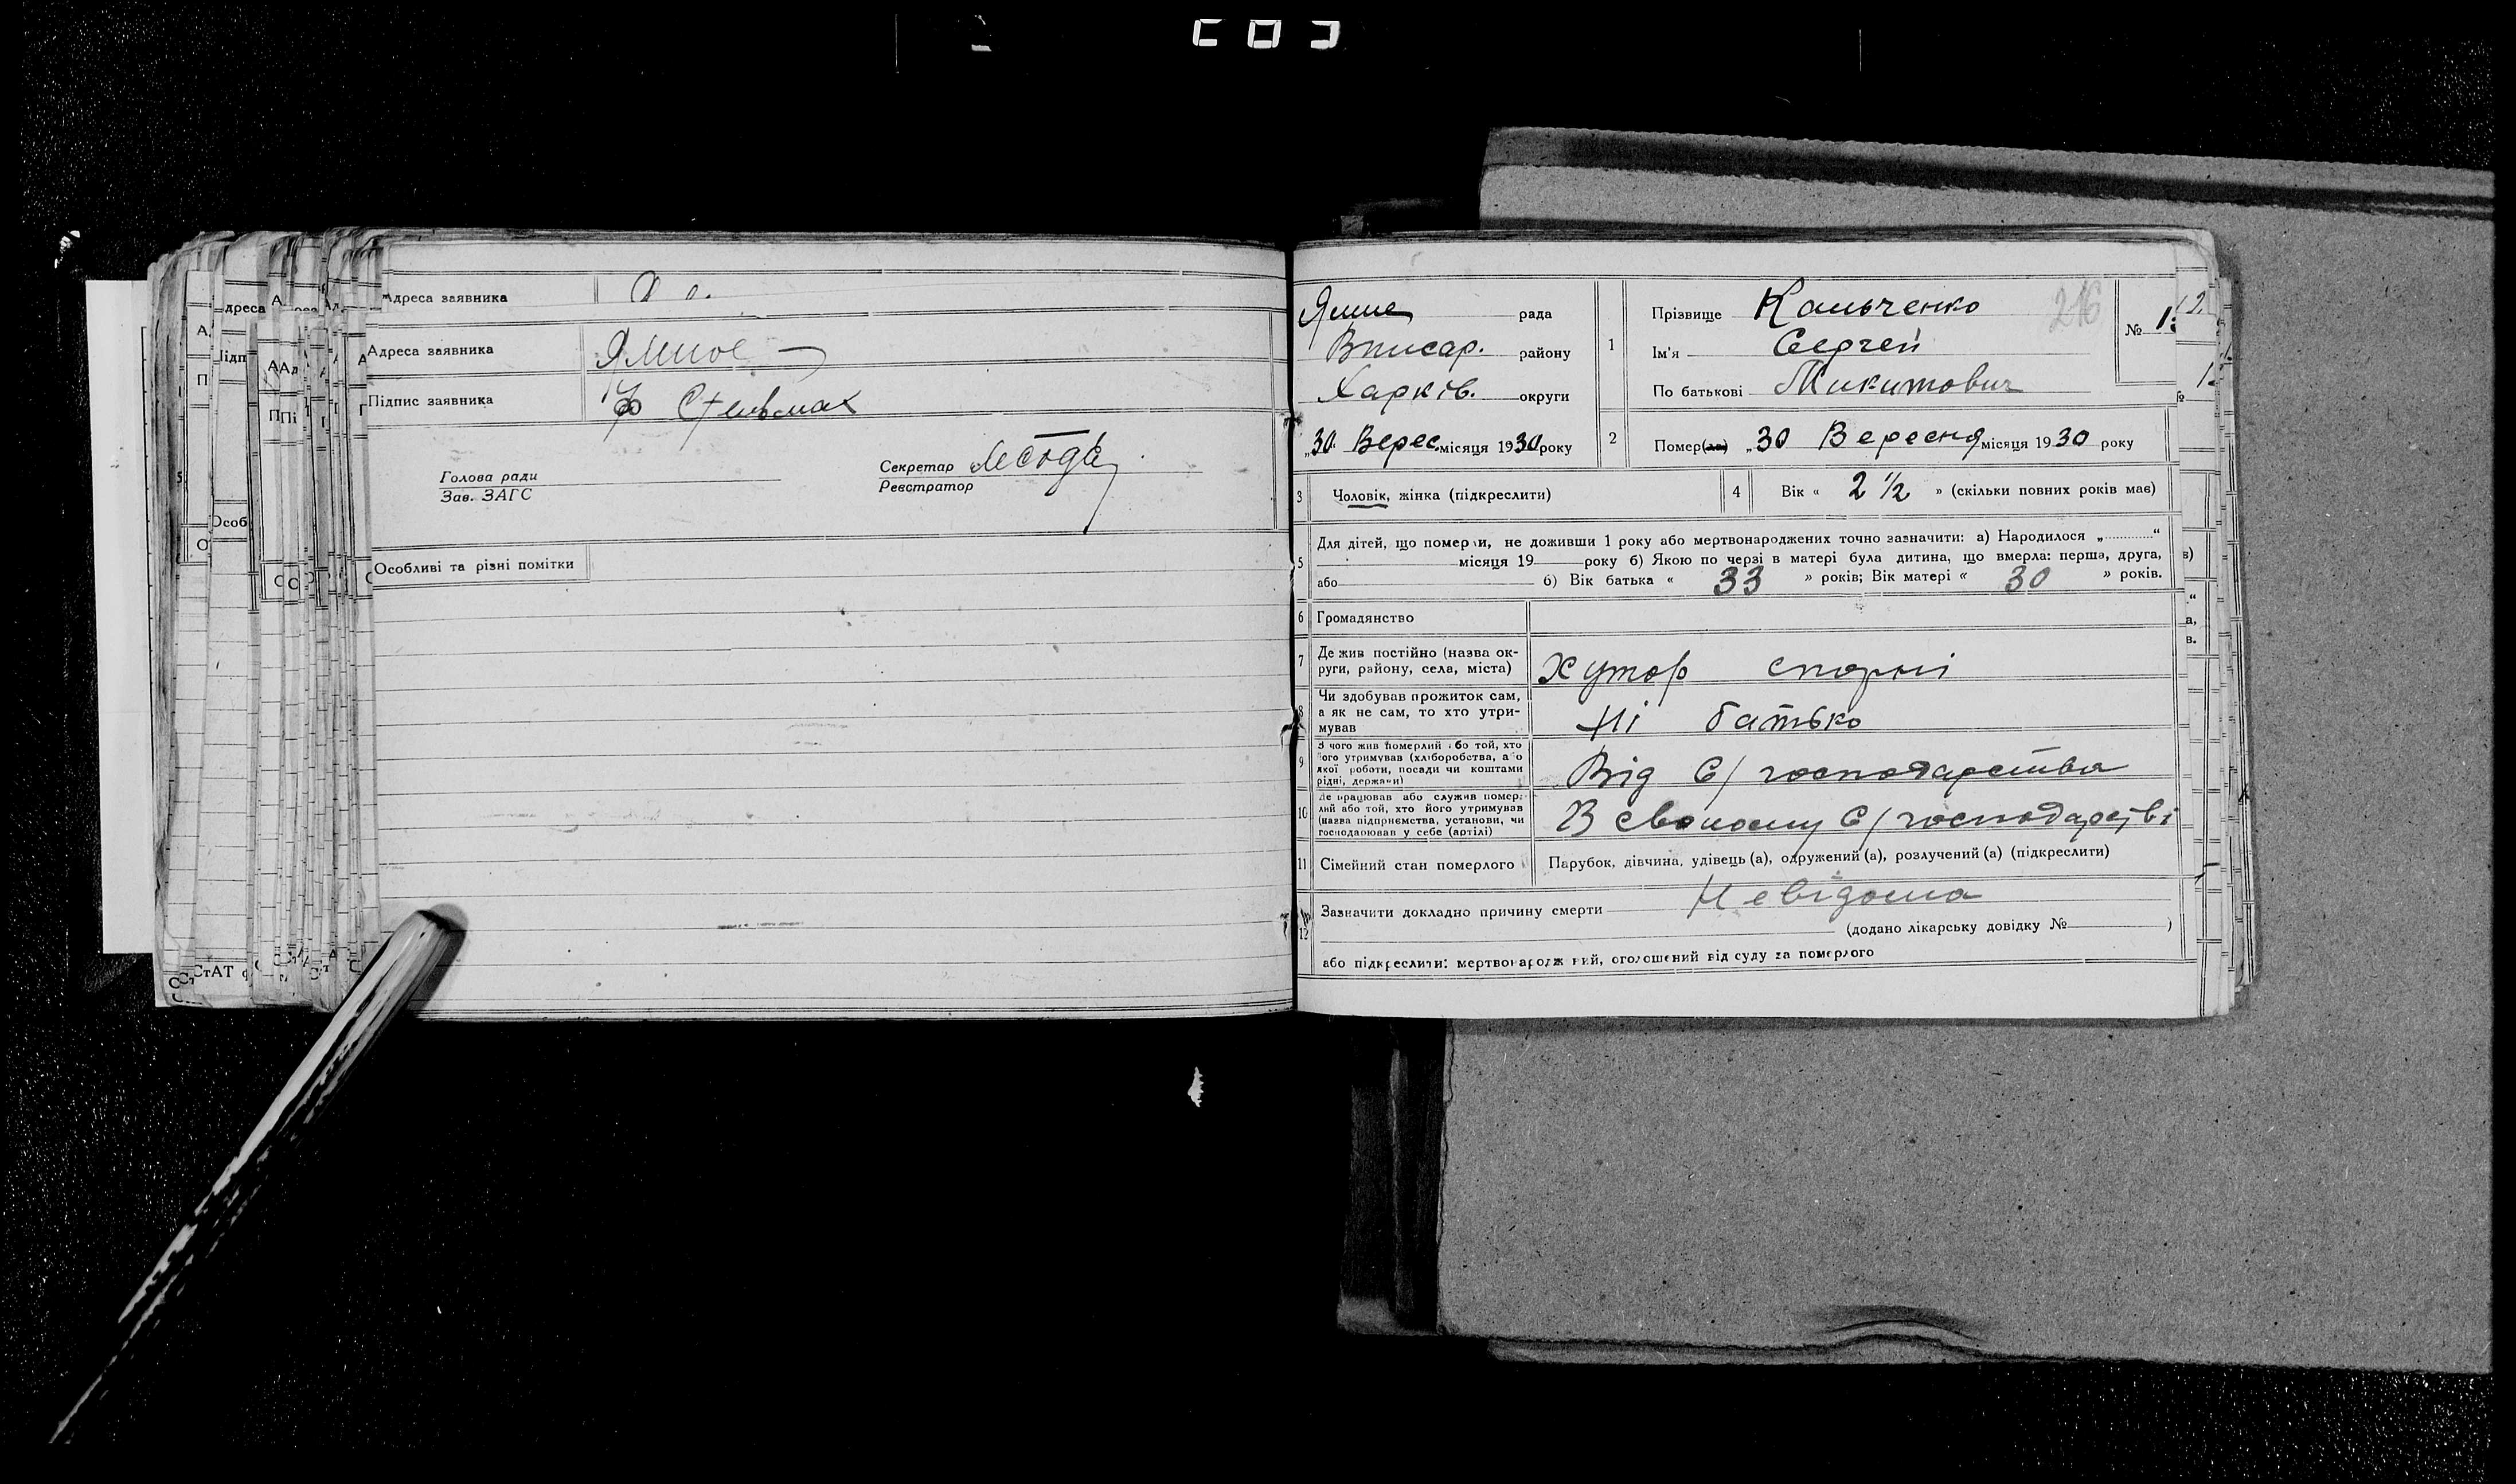 Адреса заявника
Адреса заявника Ямное
Підпис заявника Стельмах
Голова ради
Зав. ЗАГС
Секретар
Реєстратор
Особливі та різні помітки
Ямне рада
район
Харків. округи
„30 Верес. місяця 1930 року
1
Прізвище Кальченко 216
Ім'я Сергей
По батькові Микитович
№
2 Помер(ла) „30 Вересня місяця 1930 року
3 Чоловік, жінка (підкреслити)
4 Вік « 2 ½ » (скільки повних років має)
5 Для дітей, що померли, не доживши 1 року або мертвонароджених точно зазначити: а) Народилося „ “
місяця 19 року б) Якою по черзі в матері була дитина, що вмерла: перша, друга,
або б) Вік батька « 33 » років; Вік матері « 30 » років.
6 Громадянство
7 Де жив постійно (назва ок-
руги, району, села, міста) Хутор
8 Чи здобував прожиток сам,
а як не сам, то хто утри-
мував Ні батько
9 З чого жив померлий або той, хто
його утримував (хліборобства, або
якої роботи, посади чи коштами
рідні, держави) Від С/господарства
10 Де працював або служив помер-
лий або той, хто його утримував
(назва підприємства, установи, чи
господарював у себе (артілі) В своному С/господарстві
11 Сімейний стан померлого Парубок, дівчина, удівець (а), одружений (а), розлучений (а) (підкреслити)
12 Зазначити докладно причину смерти Невідома
(додано лікарську довідку № )
або підкреслити: мертвонароджений, оголошений від суду за померлого